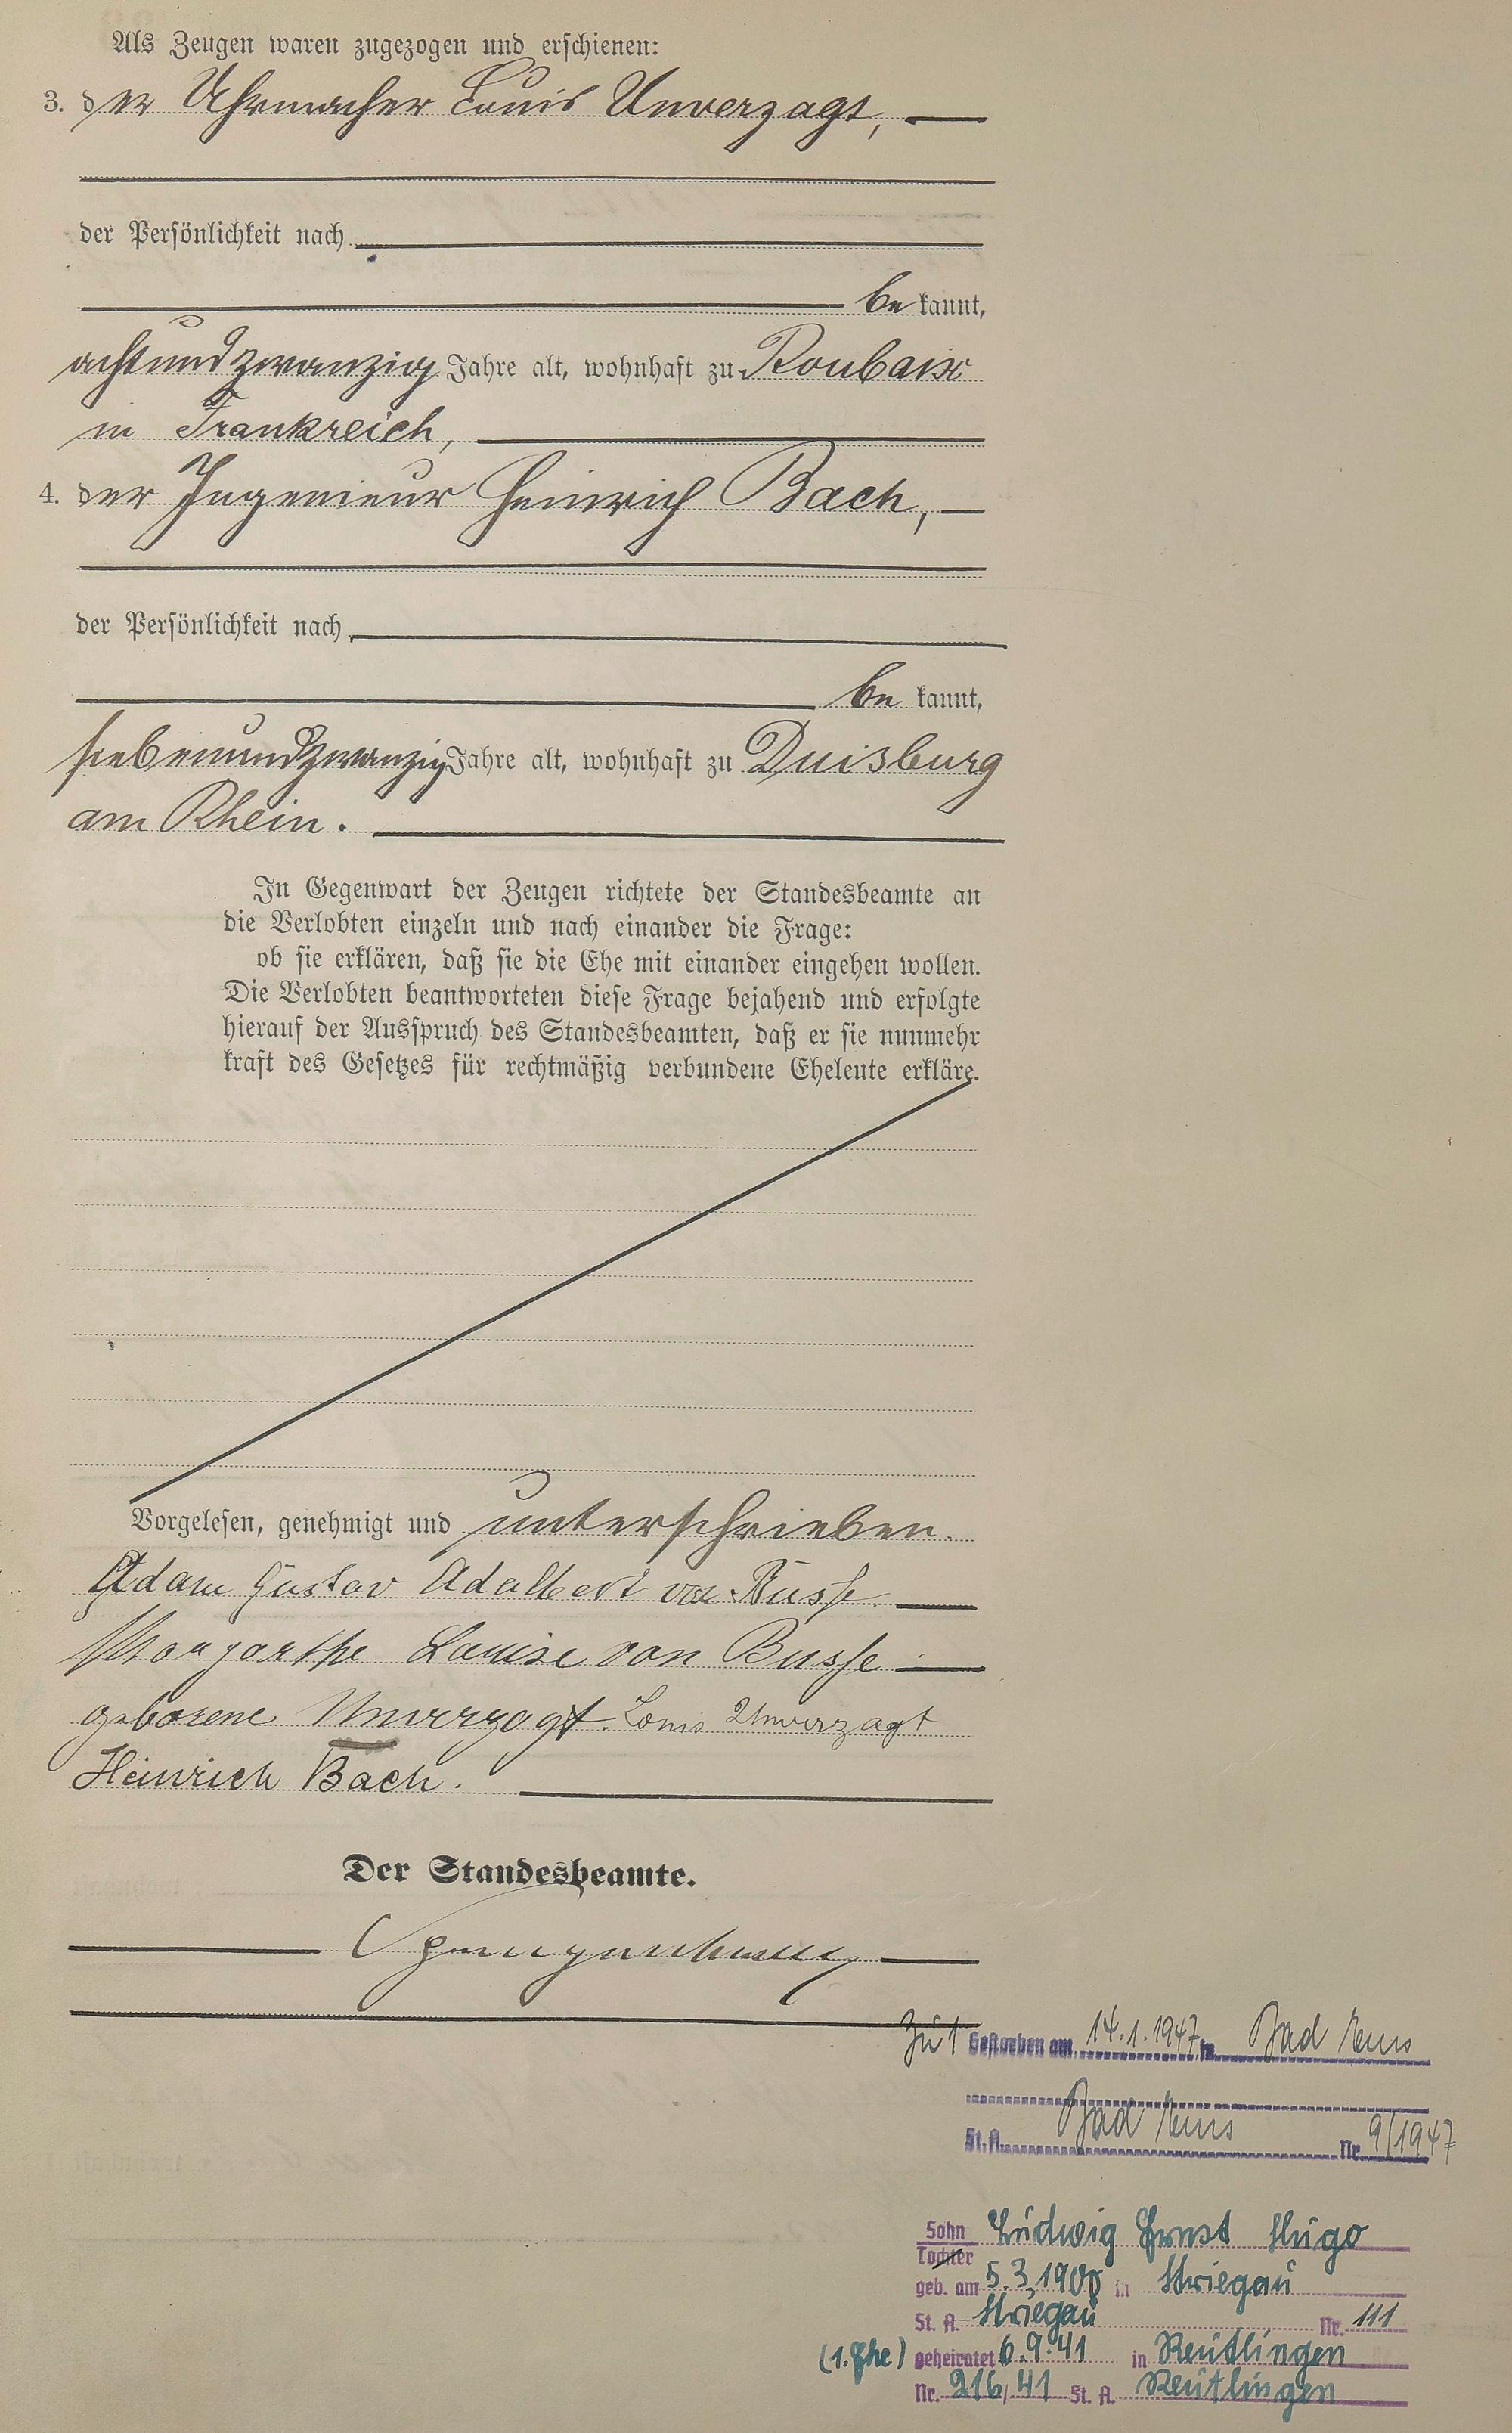 Als Zeugen waren zugezogen und erschienen:
3. der Uhrmacher Louis Unverzagt,
der Persönlichkeit nach
bekannt,
achtundzwanzig Jahre alt, wohnhaft zu Roubaix
in Frankreich,
4. der Ingenieur Heinrich Bach,
der Persönlichkeit nach
bekannt,
siebenundzwanzig Jahre alt, wohnhaft zu Duisburg
am Rhein.
In Gegenwart der Zeugen richtete der Standesbeamte an
die Verlobten einzeln und nach einander die Frage:
ob sie erklären, daß sie die Ehe mit einander eingehen wollen.
Die Verlobten beantworteten diese Frage bejahend und erfolgte
hierauf der Ausspruch des Standesbeamten, daß er sie nunmehr
kraft des Gesetzes für rechtmäßig verbundene Eheleute erkläre.
Vorgelesen, genehmigt und unterschrieben.
Adam Gustav Adalbert von Busse
Margarethe Louise von Busse
geborene Unverzagt. Louis Unverzagt
Heinrich Bach.
Der Standesbeamte.
Zu 1 Gestorben am 14.1.1947 in Bad Ems
Bad Ems
St.A. Nr. 9/1947
Sohn Ludwig Ernst Hugo
Tochter
geb. am 5.3.1908 in Striegau
St. A. Striegau Nr. 111
(1. Ehe) geheiratet 6.9.41 in Reutlingen
Nr. 216/41 St. A. Reutlingen